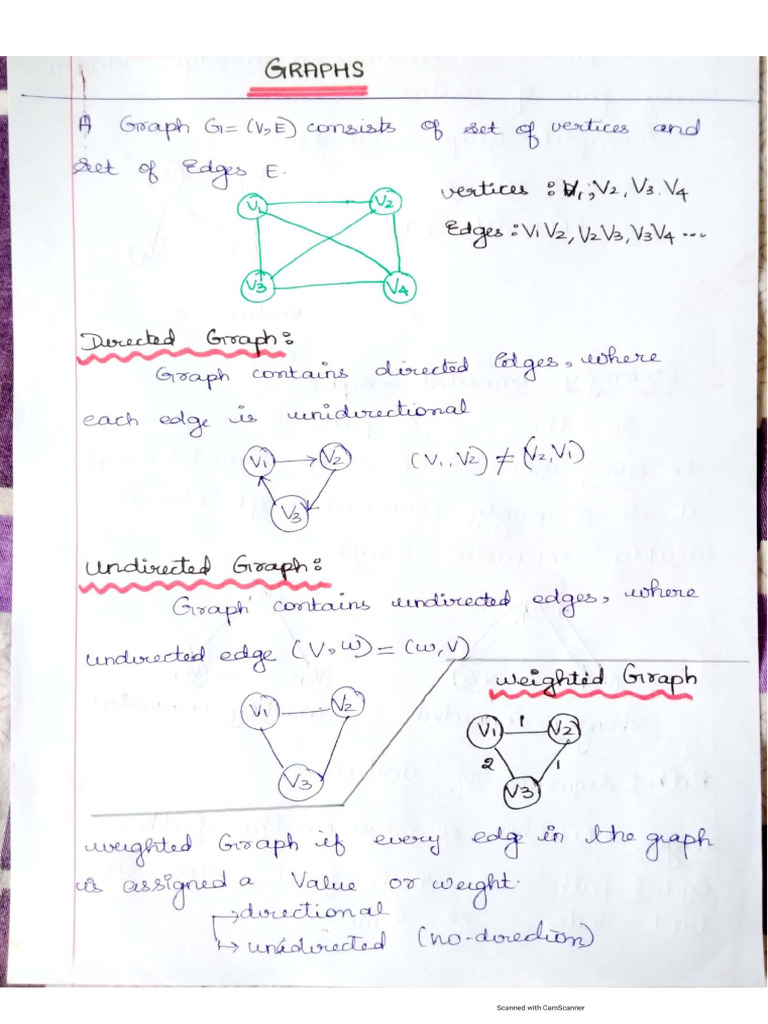 GRAPHS
A Graph G = (V, E) consists of set of vertices and
set of Edges E.
vertices : V1, V2, V3. V4
Edges : V1V2, V2V3, V3V4 ...
V1 V2
V3 V4
Directed Graph:
Graph contains directed Edges, where
each edge is unidirectional
V1 V2
(V1, V2) ≠ (V2, V1)
V3
Undirected Graph:
Graph contains undirected edges, where
undirected edge (V, w) = (w, V)
Weighted Graph
V1 V2
V3
V1 1 V2
2 1
V3
weighted Graph if every edge in the graph
is assigned a Value or weight.
→ directional
→ unidirected (no-direction)
Scanned with CamScanner